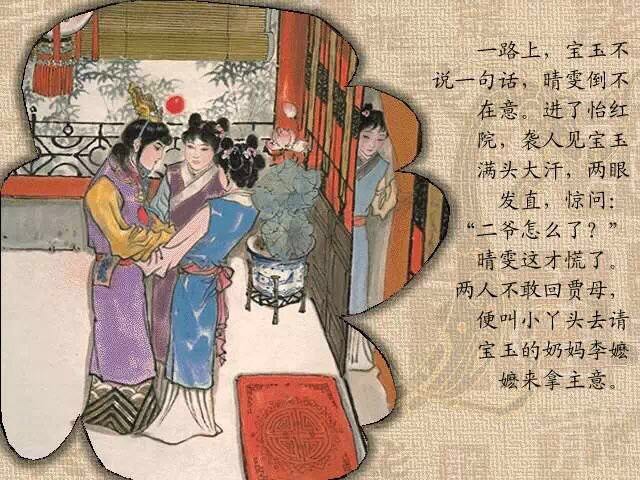 一路上，宝玉不
说一句话，晴雯倒不
在意。进了怡红
院，袭人见宝玉
满头大汗，两眼
发直，惊问：
“二爷怎么了？”
晴雯这才慌了。
两人不敢回贾母，
便叫小丫头去请
宝玉的奶妈李嬷
嬷来拿主意。